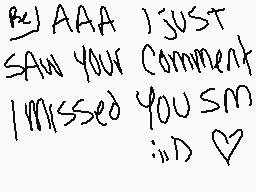 Re) AAA I just
saw your comment
I missed you sm
:,,D ♡